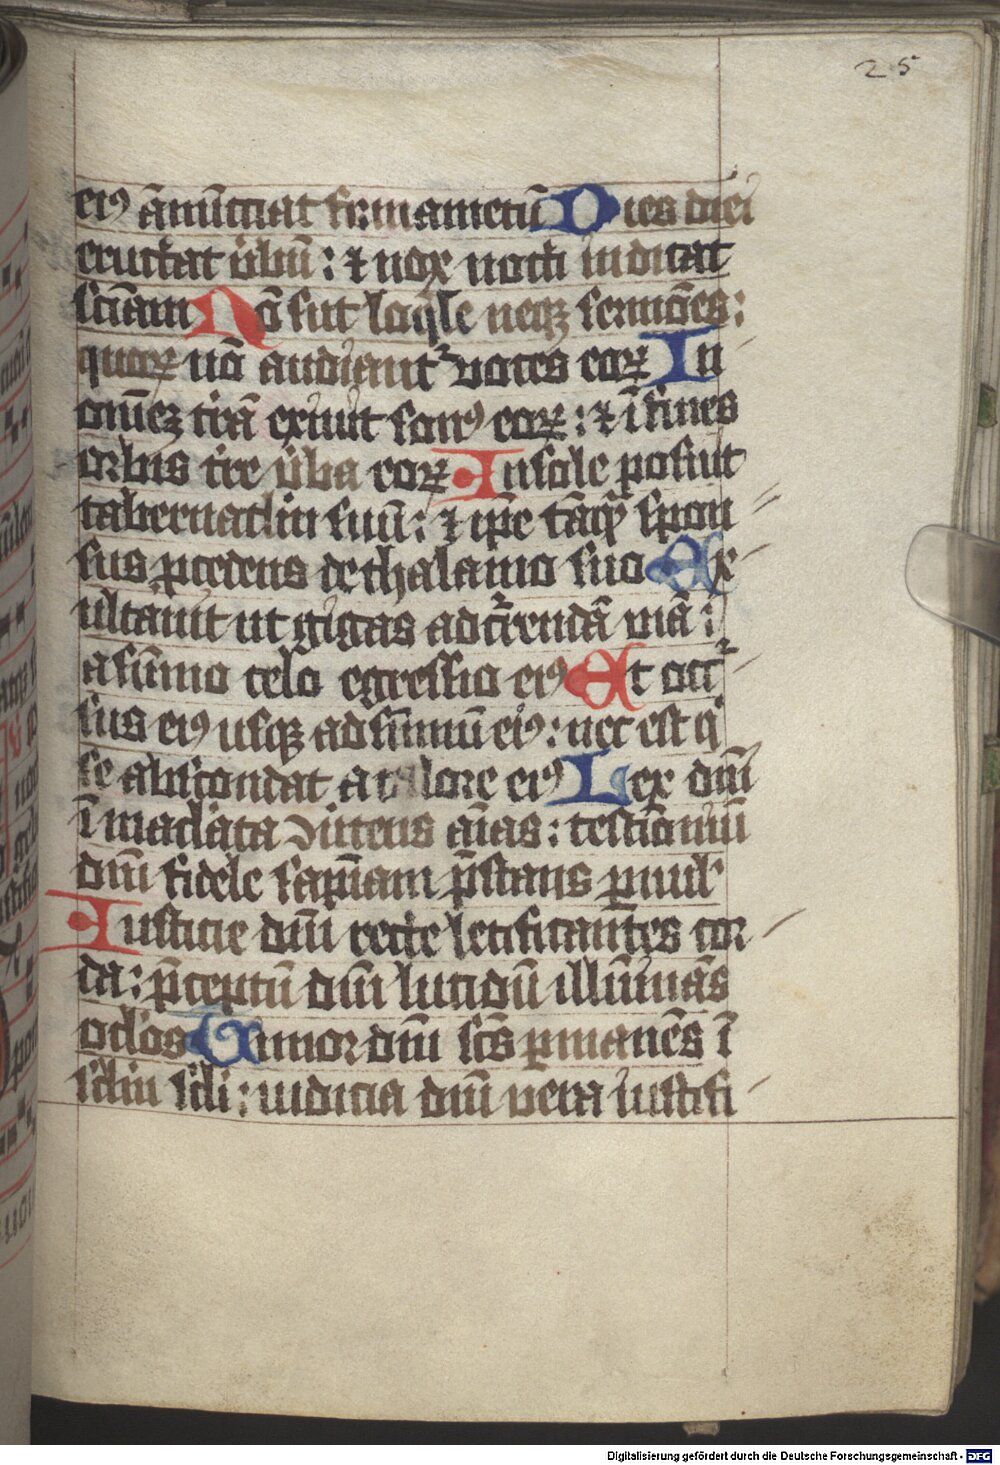 25
eiꝰ ãnũciat firmamẽtũ Dies diei
eructat ũbũ : ⁊ nox nocti indicat
sciẽam Nõ sũt loq̃le neqꝫ sermões :
quoꝝ nõ audiant᷑ voces eoꝝ In
omẽꝫ t̃rã exiuit sonꝰ eoꝝ : ⁊ ĩ fines
orbis t̃re ũba eoꝝ In sole posuit
tabernaclm suũ : ⁊ ip̃e tãq̃ spon
sus ꝓcedens de thalamo suo Ex
ultauit ut gigas ad c̃rendã viã :
a sũmo celo egressio eiꝰ Et occ᷑
sus eiꝰ usqꝫ ad sũmũ eiꝰ : nec est q̇
se abscondat a calore eiꝰ Lex dñi
ĩmaclata ↄ̃uertens aĩas : testimoniũ
dñi fidele sapiẽam p̃stans ꝑuul᷑
Iusticie dñi recte letificantes cor
da : p̃ceptũ dñi lucidũ illũinãs
oclos Timor dñi sc̃s ꝑmanẽs ĩ
sclm scli : iudicia dñi vera iustifi
Digitalisierung gefördert durch die Deutsche Forschungsgemeinschaft - DFG